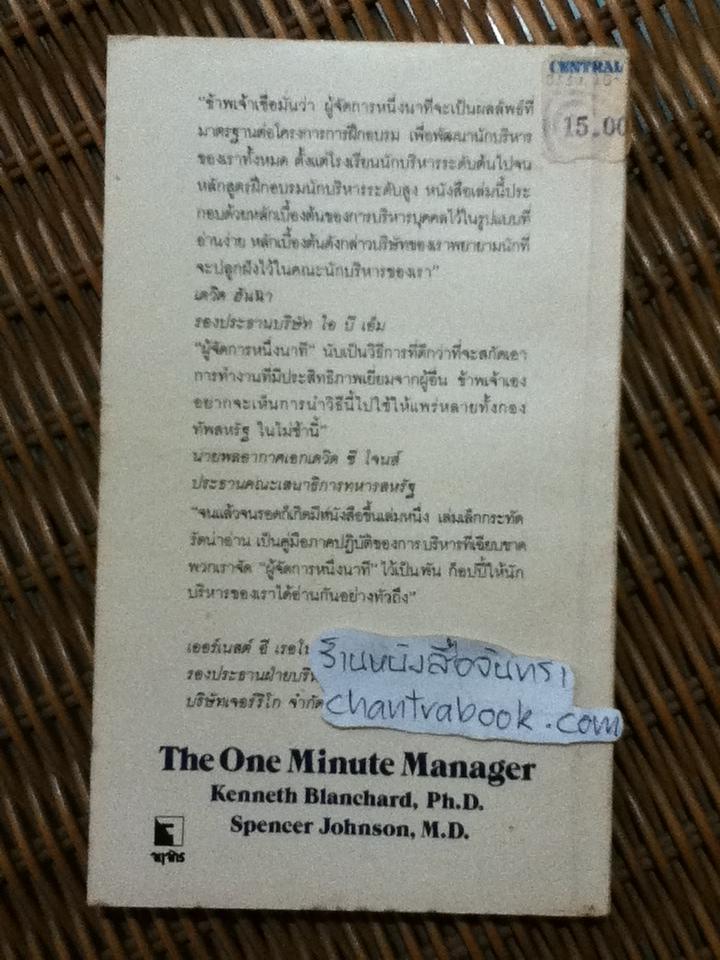 CENTRAL
15.00
“ข้าพเจ้าเชื่อมั่นว่า ผู้จัดการหนึ่งนาทีจะเป็นผลลัพธ์ที่
มาตรฐานต่อโครงการการฝึกอบรม เพื่อพัฒนานักบริหาร
ของเราทั้งหมด ตั้งแต่โรงเรียนนักบริหารระดับต้นไปจน
หลักสูตรฝึกอบรมนักบริหารระดับสูง หนังสือเล่มนี้ประ
กอบด้วยหลักเบื้องต้นของการบริหารบุคคลไว้ในรูปแบบที่
อ่านง่าย หลักเบื้องต้นดังกล่าวบริษัทของเราพยายามนักที่
จะปลูกฝังไว้ในคณะนักบริหารของเรา”
เดวิด ฮันนา
รองประธานบริษัท ไอ บี เอ็ม
“ผู้จัดการหนึ่งนาที” นับเป็นวิธีการที่ดีกว่าที่จะสกัดเอา
การทำงานที่มีประสิทธิภาพเยี่ยมจากผู้อื่น ข้าพเจ้าเอง
อยากจะเห็นการนำวิธีนี้ไปใช้ให้แพร่หลายทั้งกอง
ทัพสหรัฐ ในไม่ช้านี้”
นายพลอากาศเอกเดวิด ซี โจนส์
ประธานคณะเสนาธิการทหารสหรัฐ
“จนแล้วจนรอดก็เกิดมีหนังสือขึ้นเล่มหนึ่ง เล่มเล็กกระทัด
รัดน่าอ่าน เป็นคู่มือภาคปฏิบัติของการบริหารที่เฉียบขาด
พวกเราจัด “ผู้จัดการหนึ่งนาที” ไว้เป็นพัน ก็อปปี้ให้นัก
บริหารของเราได้อ่านกันอย่างทั่วถึง”
เออร์เนสต์ อี
รองประธานฝ่าย
บริษัทเจอร์ริโก จำกัด
ร้านหนังสือจันทรา
chantrabook.com
The One Minute Manager
Kenneth Blanchard, Ph.D.
Spencer Johnson, M.D.